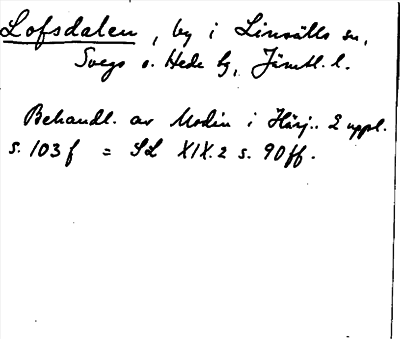 Lofsdalen, by i Linsälls sn,
Svegs o. Hede tg, Jämtl. l.
Behandl. av Modin i Härj.. 2 uppl.
s. 103 f = SL XIX. 2 s. 90 ff.